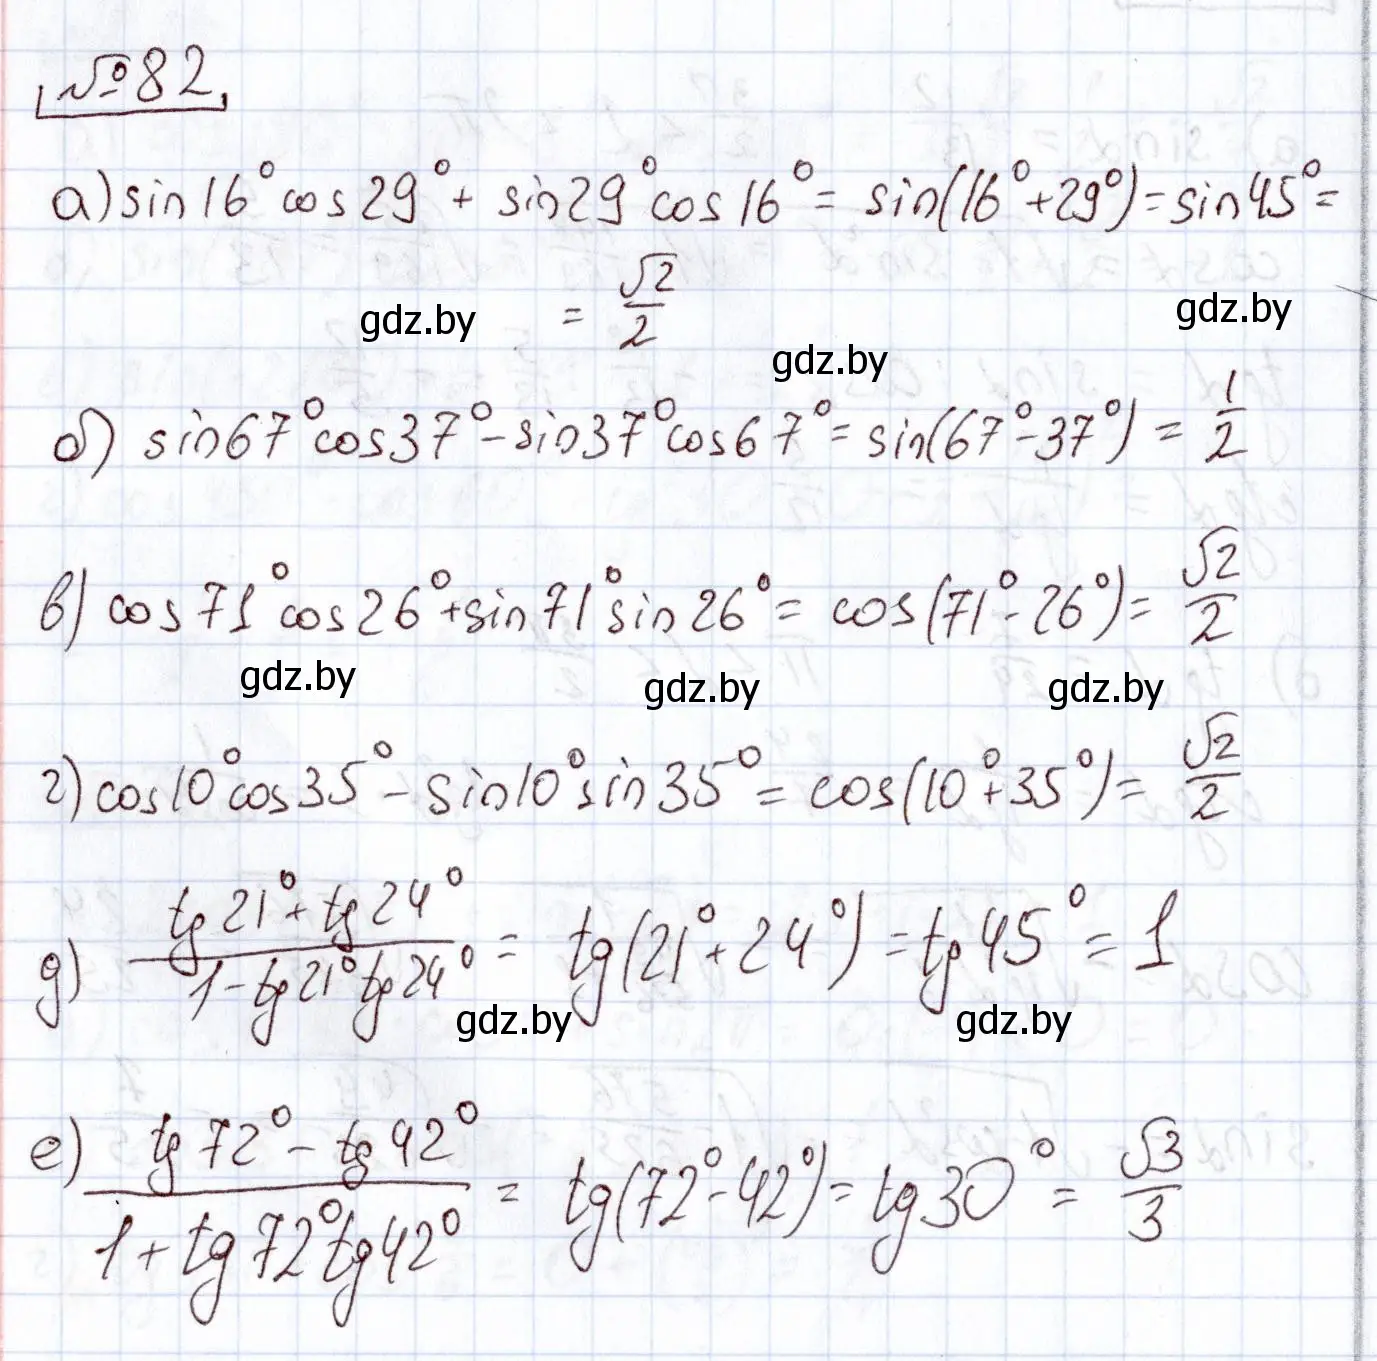 №82
а) sin16° cos29° + sin29° cos16° = sin(16° + 29°) = sin45° =
= √2/2
gdz.by gdz.by
gdz.by
б) sin67° cos37° - sin37° cos67° = sin(67° - 37°) = 1/2
в) cos71° cos26° + sin71° sin26° = cos(71° - 26°) = √2/2
gdz.by gdz.by gdz.by
г) cos10° cos35° - sin10° sin35° = cos(10° + 35°) = √2/2
д) (tg21° + tg24°)/(1 - tg21° tg24°) = tg(21° + 24°) = tg45° = 1
gdz.by gdz.by
е) (tg72° - tg42°)/(1 + tg72° tg42°) = tg(72° - 42°) = tg30° = √3/3